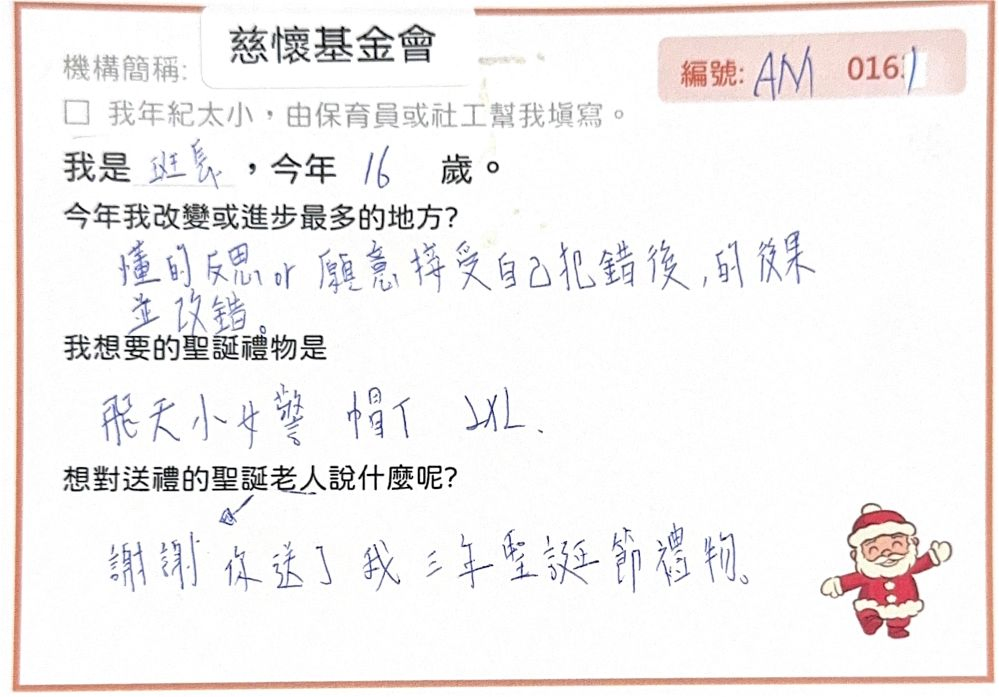 慈懷基金會
機構簡稱:
編號: AM 0161
□ 我年紀太小，由保育員或社工幫我填寫。
我是 班長，今年 16 歲。
今年我改變或進步最多的地方?
懂的反思or 願意接受自己犯錯後,的後果
並改錯。
我想要的聖誕禮物是
飛天小女警 帽T 2XL.
想對送禮的聖誕老人說什麼呢?
謝謝你送了我三年聖誕節禮物。